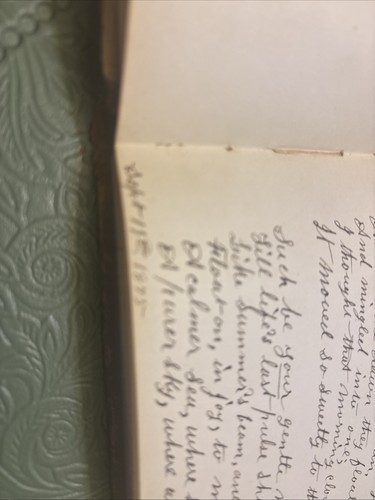 drawn they
And mingled into one;
I thought that morning
It moved so sweetly to
Such be your gentle
Till life's last pulse
Like summer's beam,
Float on, in joy, to
A calmer sea, where
A purer sky, where
Sept